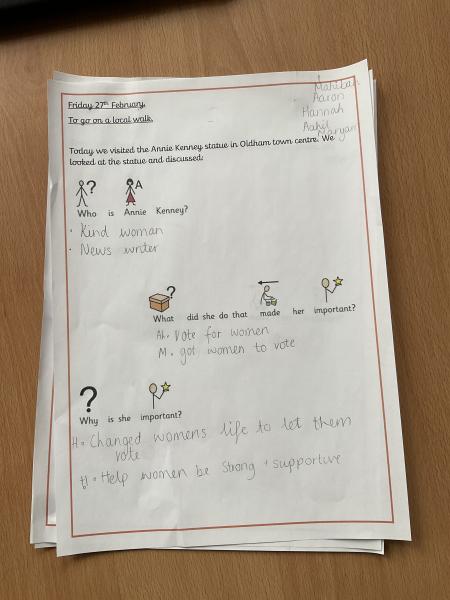 Friday 27th February.
To go on a local walk.
Mahibah
Aaron
Hannah
Aahil
Maryam
Today we visited the Annie Kenney statue in Oldham town centre. We
looked at the statue and discussed:
? A
Who is Annie Kenney?
• Kind woman
• News writer
?
What did she do that made her important?
Ah. Vote for women
M. got women to vote
?
Why is she important?
H. Changed womens life to let them
vote
H. Help women be strong + supportive